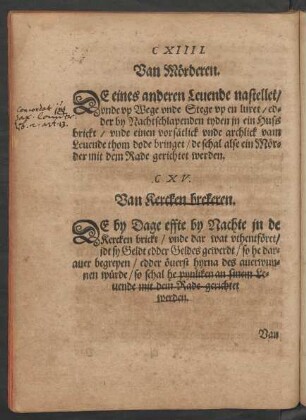 CXIIII.
Van Mörderen.
DE eines anderen Leuende nastellet/
vnde vp Wege vnde Stege vp en luret/ ed-
der by Nachtschlapenden tyden in ein Huss
brickt/ vnde einen vorsätlick vnde archlick vam
Leuende thom dode bringet/ de schal alse ein Mör-
der mit dem Rade gerichtet werden.
CXV.
Van Kercken brekeren.
DE by Dage effte by Nachte in de
Kercken brickt/ vnde dar wat vthentföret/
idt sy Geldt edder Geldes gewerdt/ so he dar-
auer begrepen/ edder önerst hyrna des auerwun-
nen würde/ so schal he
uende mit dem Rade gerichtet
werden.
Van